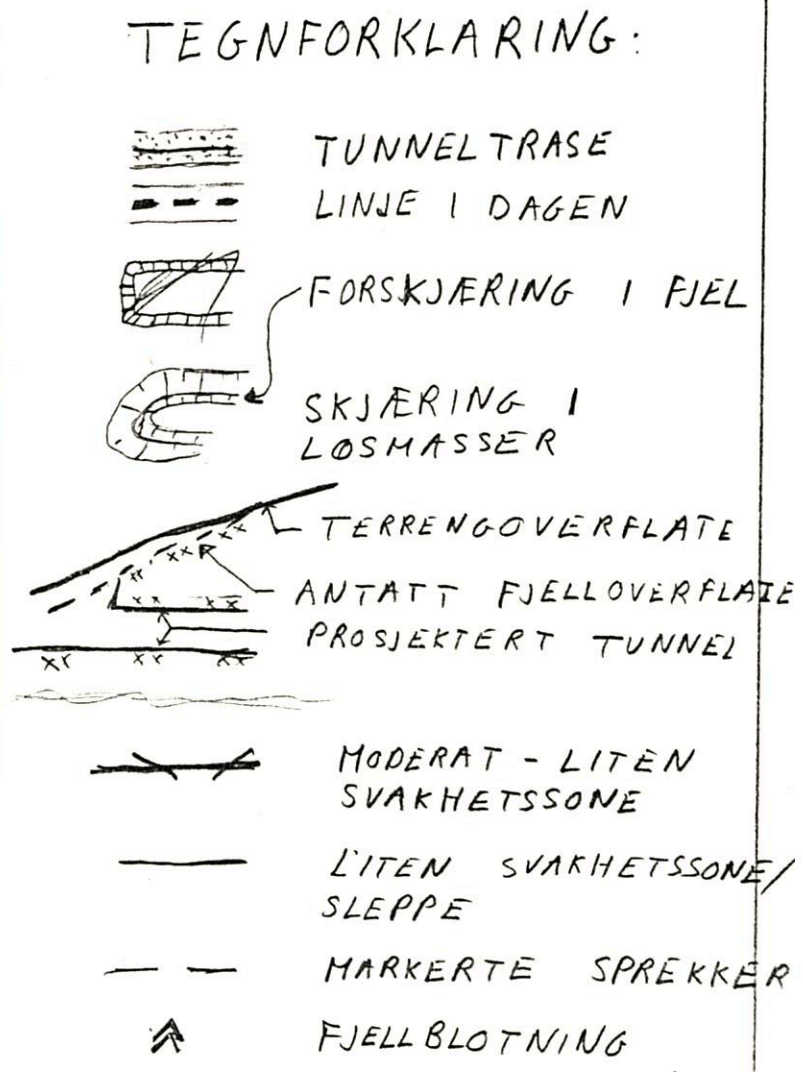 TEGNFORKLARING:
TUNNELTRASE
LINJE I DAGEN
FORSKJÆRING I FJEL
SKJÆRING I
LØSMASSER
TERRENGOVERFLATE
ANTATT FJELLOVERFLATE
PROSJEKTERT TUNNEL
MODERAT - LITEN
SVAKHETSSONE
LITEN SVAKHETSSONE/
SLEPPE
MARKERTE SPREKKER
FJELLBLOTNING